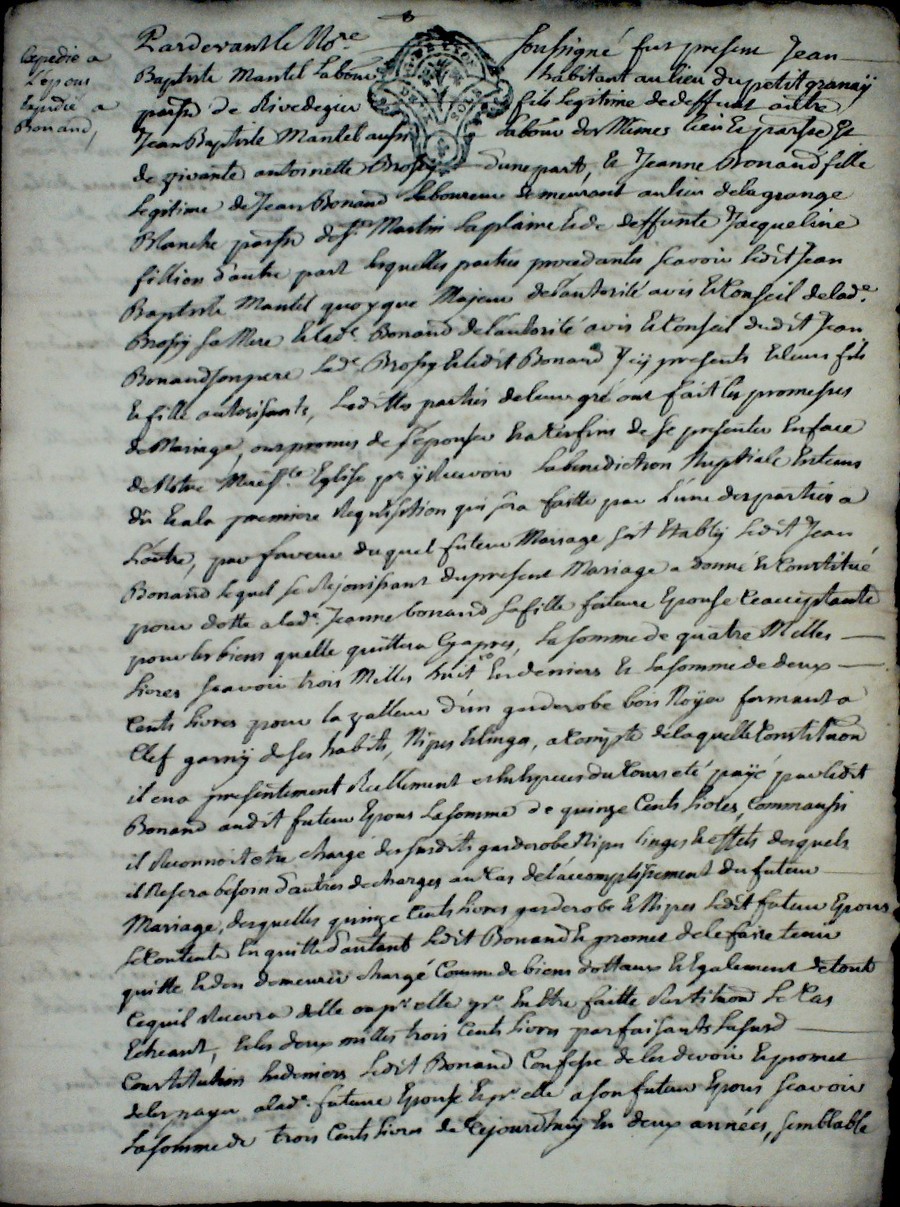 Expedié a
L'epous
Expedié a
Bonand,
Pardevant le No.re soussigné fut present Jean
Baptiste Mantel Labour habitant au lieu du petit granaÿ
parsse de Rivedegier fils legitime de deffunt autre
Jean Baptiste Mantel aussi labour des Mêmes lieu et parsse, et
de vivante antoinette Brossy d'une part, et Jeanne Bonand fille
legitime de Jean Bonand Laboureur demeurant au lieu de la grange
Blanche parsse de St Martin Laplaine et de deffunte Jacqueline
fillion d'autre part lesquelles parties procedantes scavoir ledit Jean
Baptiste Mantel quoyque Majeur de l'autorité avis et Conseil de lade
Brossy sa Mere et lade Bonand de l'autorité avis et Conseil dudit Jean
Bonand son pere lade Brossy et ledit Bonand Jcy presents et leurs fils
et fille autorisants, Lesdittes parties de leur gré ont fait les promesses
de Mariage, ont promis de s'epouser et a ces fins de se presenter en face
de Notre Mere Ste Eglise pr y recevoir la benediction Nuptiale en tems
dû et a la premiere Requisition qui sera faitte par l'une des parties a
L'autre, par faveur duquel futeur Mariage s'est Etably ledit Jean
Bonand lequel se Rejouissant du present Mariage a donné et Constitué
pour dotte a lade Jeanne bonand sa fille future Epouse et acceptante
pour les biens quelle quittera Cyapres, la somme de quatre Milles
livres scavoir trois Milles huit Ct en deniers et la somme de deux
Cents livres pour la valleur d'un garderobe bois Noyer fermant a
Clef garny de ses habits, Nipes et linge, a Compte de laquelle Constitution
il en a presentement Reellement et en Especes du Cours eté payé par ledit
Bonand audit futeur Epous la somme de quinze Cents livres, Comm'aussi
il Reconnoit etre chargé des susdits garderobe Nipes linges et effets desquels
il Ne sera besoin d'autres decharges au Cas de l'accomplissement du futeur
Mariage, desquelles quinze Cents livres garderobe et Nipes ledit futeur Epous
se Contente en quitte d'autant ledit Bonand et promet de le faire tenir
quitte et d'en demeurer chargé Comme de biens dottaux et Egalement de tout
Ce quil Recevra delle ou pr elle pr en Etre faitte Restitution le Cas
Echeant, et les deux milles trois Cents livres parfaisants la susd
Constitution en deniers ledit Bonand Confesse de les devoir et promet
de les payer a lade future Epouse et pr elle a son futeur Epous scavoir
La somme de trois Cents livres de Cejourdhuy en deux années, semblable